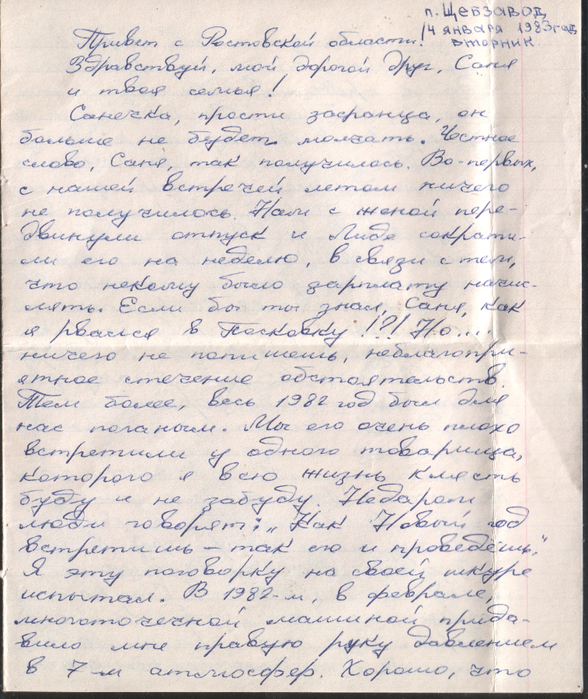 п. Щебзавод
14 января 1983 год
вторник
Привет с Ростовской области!
Здравствуй, мой дорогой друг, Саня
и твоя семья!
Санечка, прости засранца, он
больше не будет молчать. Честное
слово, Саня, так получилось. Во-первых,
с нашей встречей летом ничего
не получилось. Нам с женой пере-
двинули отпуск и Лиде сократи-
ли его на неделю, в связи с тем,
что некому было зарплату начис-
лять. Если бы ты знал, Саня, как
я рвался в Песковку!?! Но....
ничего не попишешь, неблагопри-
ятное стечение обстоятельств.
Тем более, весь 1982 год был для
нас поганым. Мы его очень плохо
встретили у одного товарища,
которого я всю жизнь клясть
буду и не забуду. Недаром
люди говорят: „Как Новый год
встретишь – так его и проведёшь."
Я эту поговорку на своей шкуре
испытал. В 1982-м, в феврале,
многоточечной машиной прида-
вило мне правую руку давлением
в 7-м атмосфер. Хорошо, что